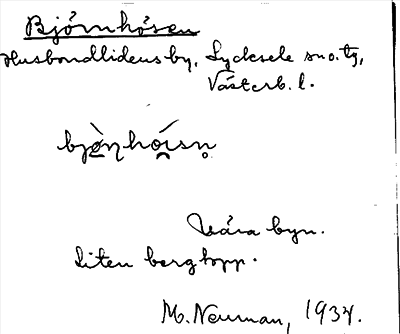 Björnhösen
Husbondlidens by, Lycksele sn o. tg,
Västerb. l.
Nära byn.
Liten bergtopp.
M. Neuman, 1934.